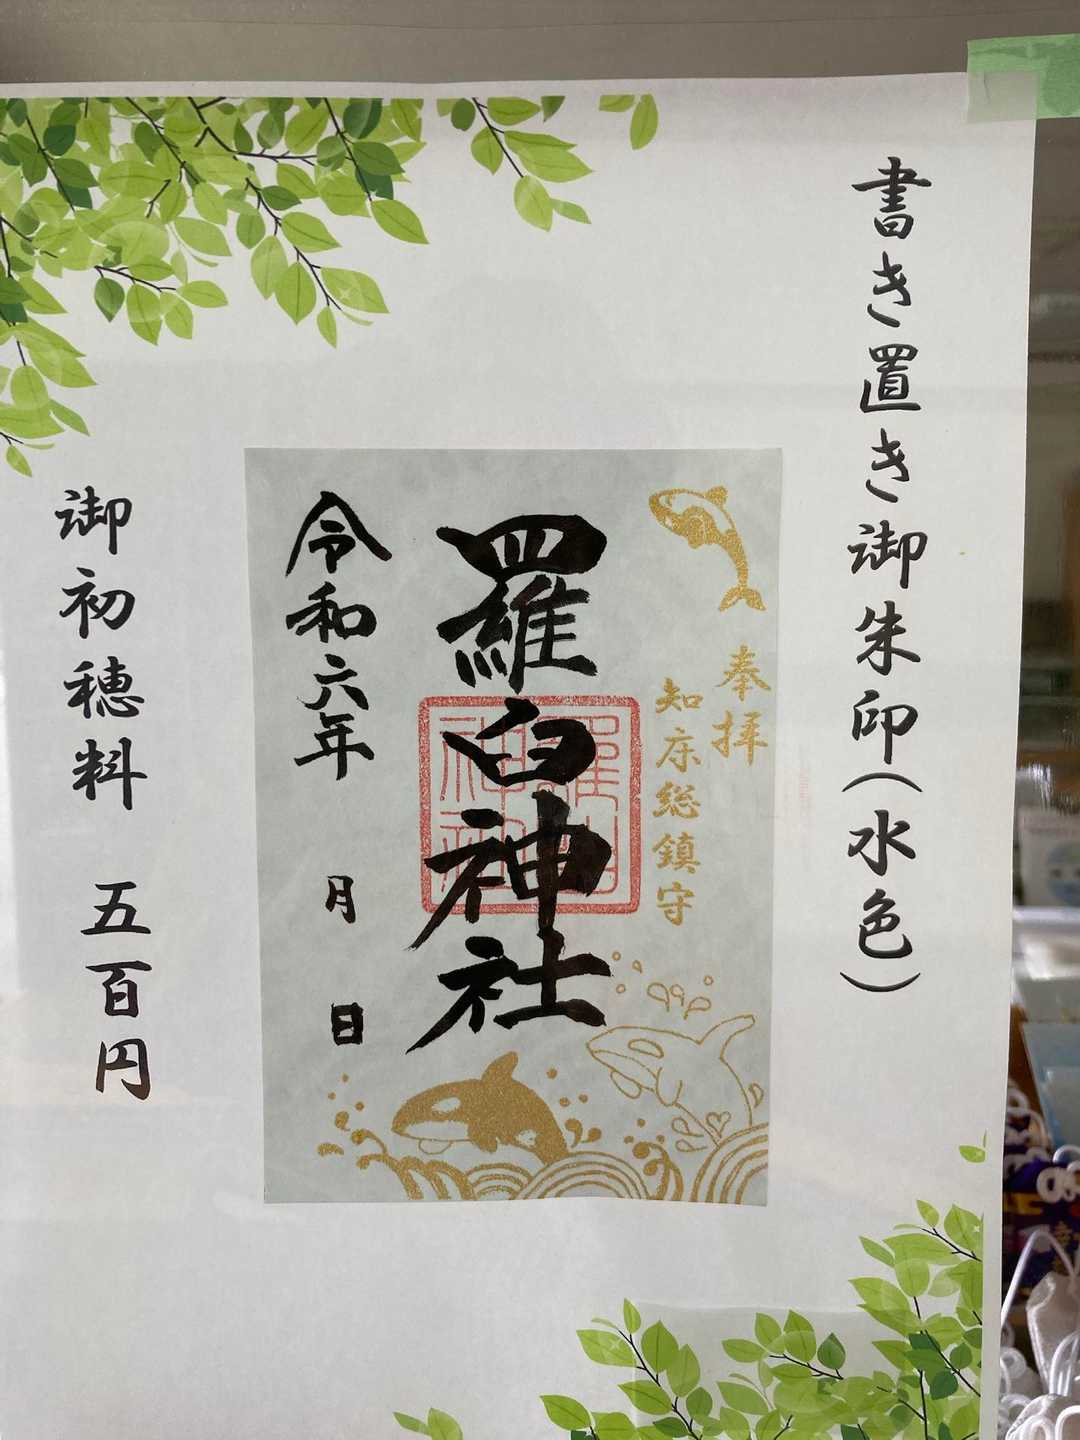 書き置き御朱印(水色)
奉拝
知床総鎮守
羅臼神社
羅臼
神社
令和六年 月 日
御初穂料 五百円